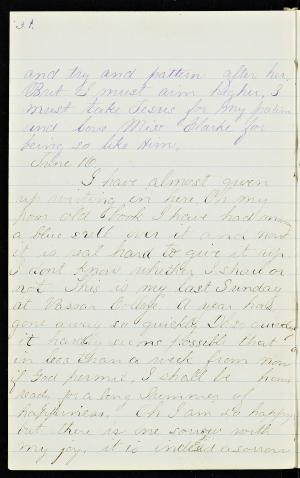 31.
and try and pattern after her.
But I must aim higher, I
must take Jesus for my pattern
and love Miss Clarke for
being so like Him.
June 16
I have almost given
up writing in here. Oh my
poor old Book I have had many
a blue spell over it and now
it is real hard to give it up
I dont know whether I shall or
not. This is my last Sunday
at Vassar College. A year has
gone away so quickly.
it hardly seems possible that
in less than a week from now
if God permit, I shall be home
ready for a long Summer of
happiness. Oh I am so happy
but there is one sorrow with
my joy. it is indeed a sorrow